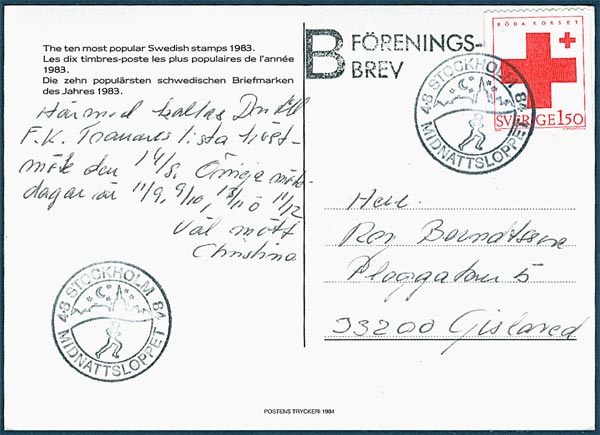 The ten most popular Swedish stamps 1983.
Les dix timbres-poste les plus populaires de l'année
1983.
Die zehn populärsten schwedischen Briefmarken
des Jahres 1983.
Härmed kallas Du till
F.K. Tranans lista höst-
möte den 14/8. Övriga möte
dagar är 11/9, 9/10, 13/11 o 11/12
Väl mött
Christina
48 STOCKHOLM 84
MIDNATTSLOPPET
POSTENS TRYCKERI 1984
B FÖRENINGS-
BREV
48 STOCKHOLM 84
MIDNATTSLOPPET
RÖDA KORSET
SVERIGE 150
Herr
Roy Berndtsson
Ploggatan 5
33200 Gislaved